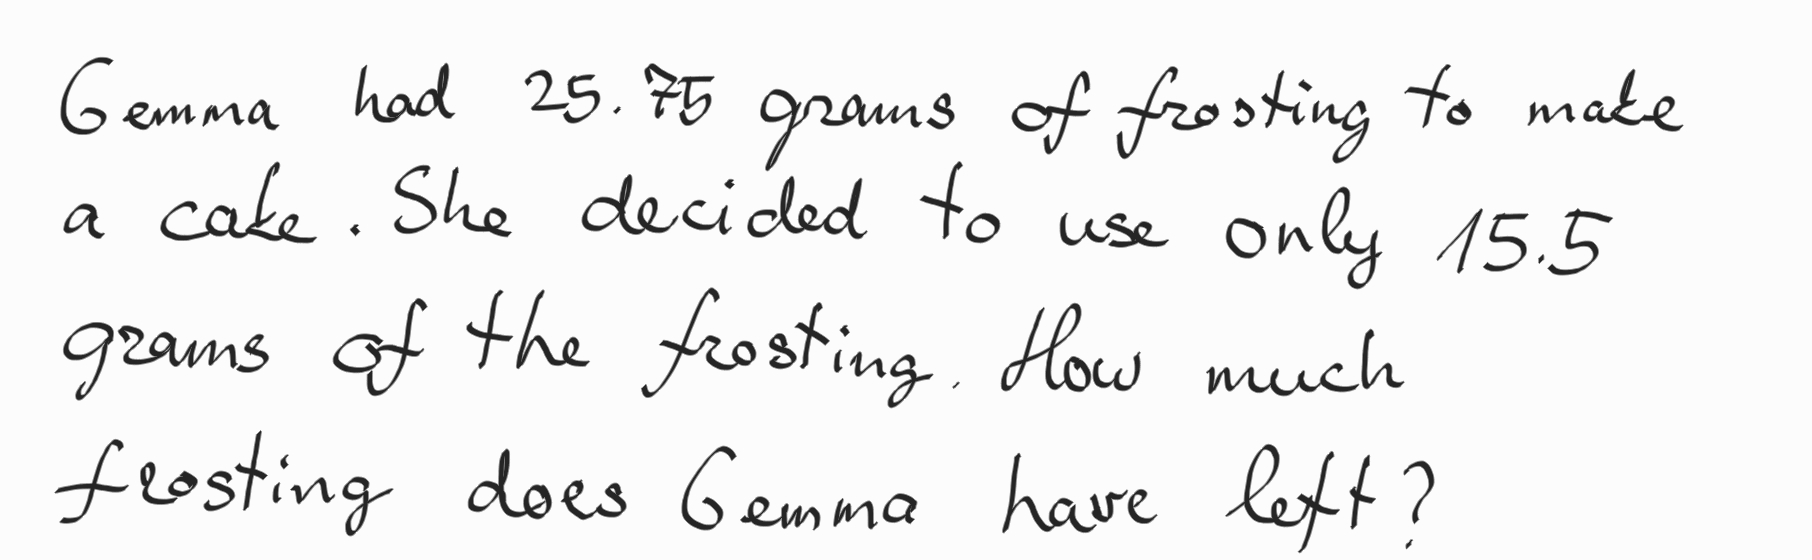 Gemma had 25.75 grams of frosting to make
a cake. She decided to use only 15.5
grams of the frosting. How much
frosting does Gemma have left?